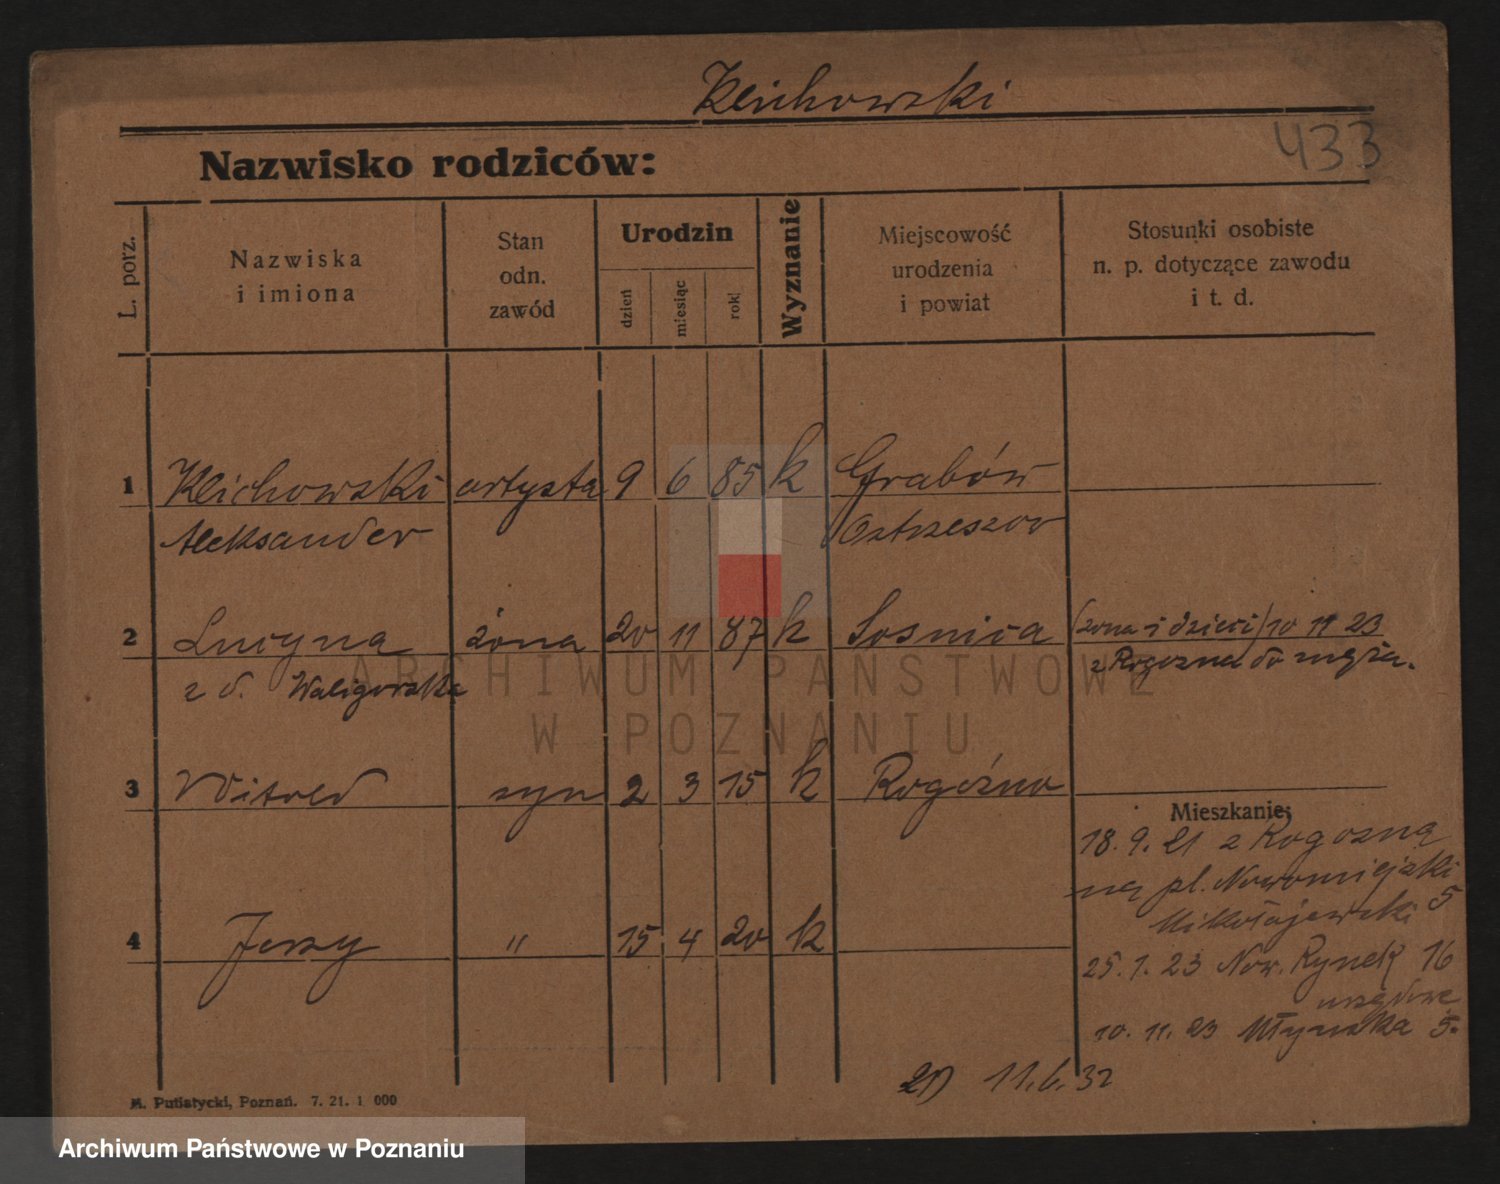 Klichowski
433
Nazwisko rodziców:
L. porz.
Nazwiska
i imiona
Stan
odn.
zawód
Urodzin
dzień
miesiąc
rok
Wyznanie
Miejscowość
urodzenia
i powiat
Stosunki osobiste
n. p. dotyczące zawodu
i t. d.
1 Klichowski artysta 9 6 85 k Grabów
Aleksander Ostrzeszow
2 Lucyna żona 20 11 87 k Sosnica (żona i dzieci) 10 11 23
z d. Waligorska z Rogozna do męża.
3 Witold syn 2 3 15 k Rogoźno
Mieszkanie:
18. 9. 21 z Rogozna
na pl. Nowomiejski 5
Mikołajewski
4 Jerzy " 15 4 20 k
25. 1. 23 Now. Rynek 16
urzędowe
10. 11. 23 Młynska 5.
11. 6. 32
M. Putiatycki, Poznań. 7. 21. 1 000
ARCHIWUM PAŃSTWOWE
W POZNANIU
Archiwum Państwowe w Poznaniu